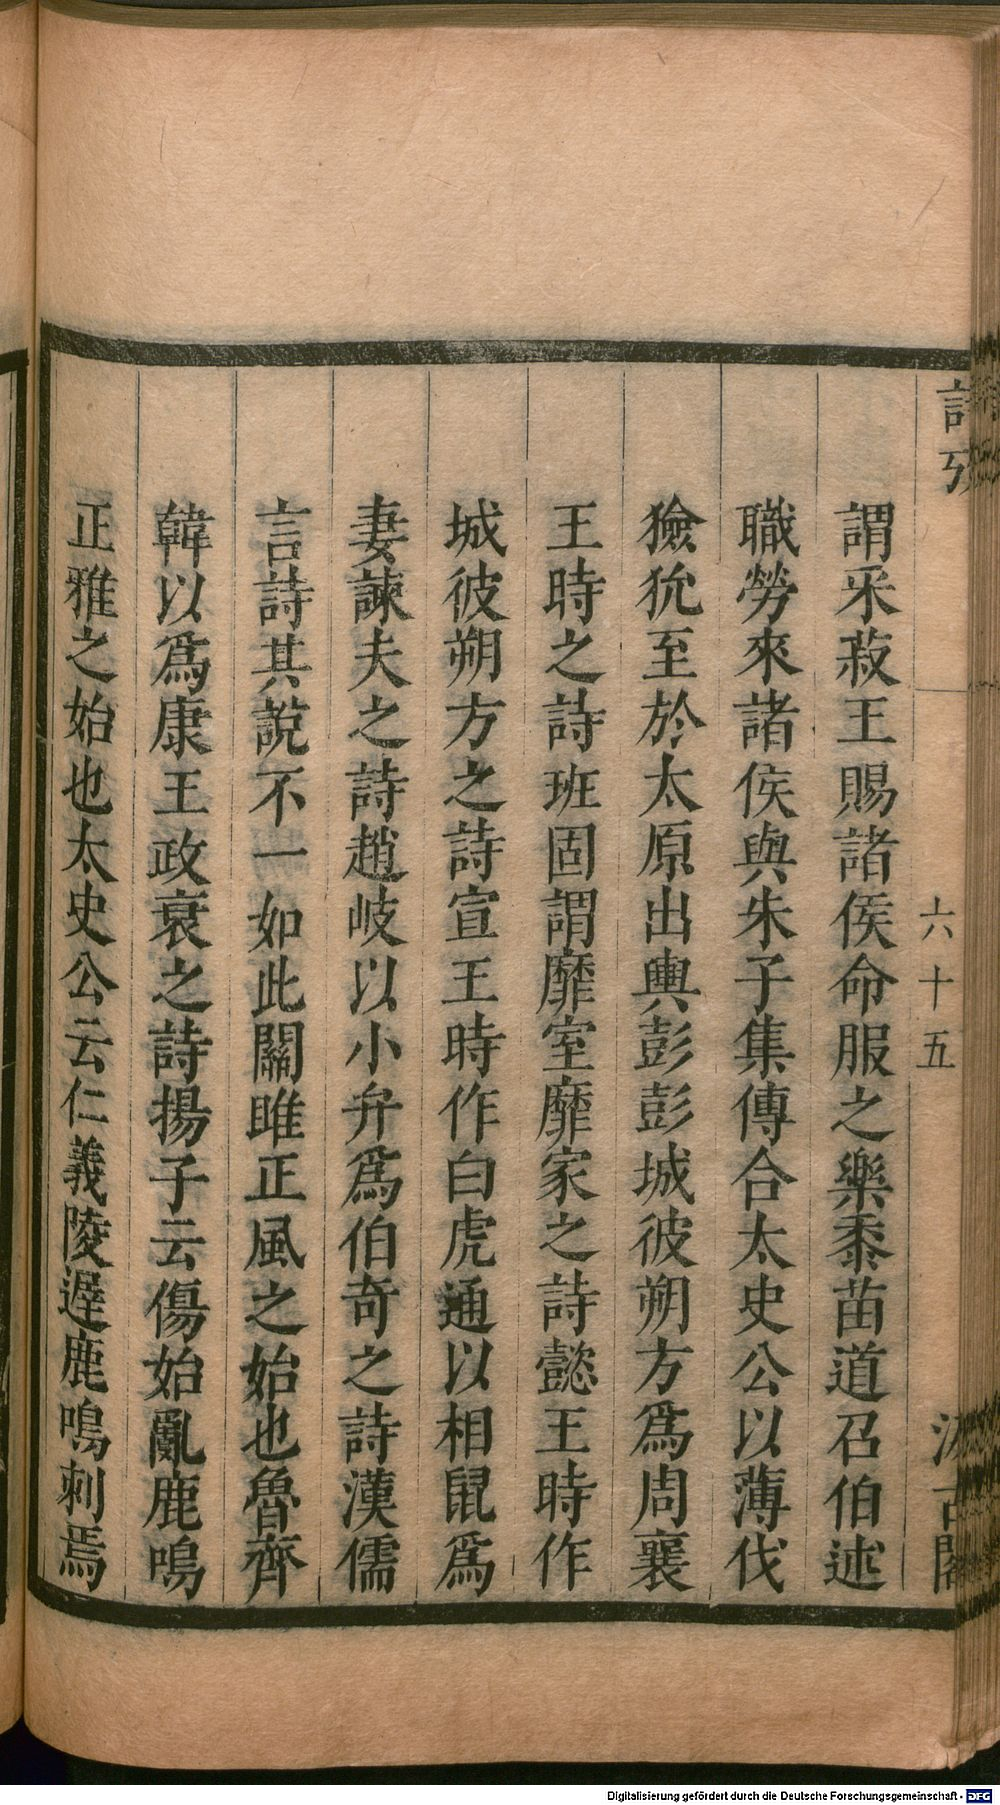 詩攷
六十五
汲古閣
謂采菽王賜諸侯命服之樂黍苗道召伯述
職勞來諸侯與朱子集傳合太史公以薄伐
獫狁至於太原出輿彭彭城彼朔方爲周襄
王時之詩班固謂靡室靡家之詩懿王時作
城彼朔方之詩宣王時作白虎通以相鼠爲
妻諫夫之詩趙岐以小弁爲伯奇之詩漢儒
言詩其說不一如此關雎正風之始也魯齊
韓以爲康王政衰之詩揚子云傷始亂鹿鳴
正雅之始也太史公云仁義陵遲鹿鳴刺焉
Digitalisierung gefördert durch die Deutsche Forschungsgemeinschaft - DFG